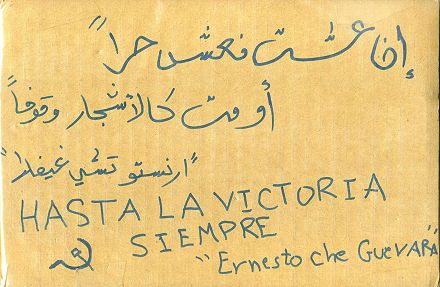 إذا عشت فعش حراً
أو مت كالأشجار وقوفاً
"ارنستو تشي غيفارا"
HASTA LA VICTORIA
SIEMPRE
"Ernesto che GueVARA"